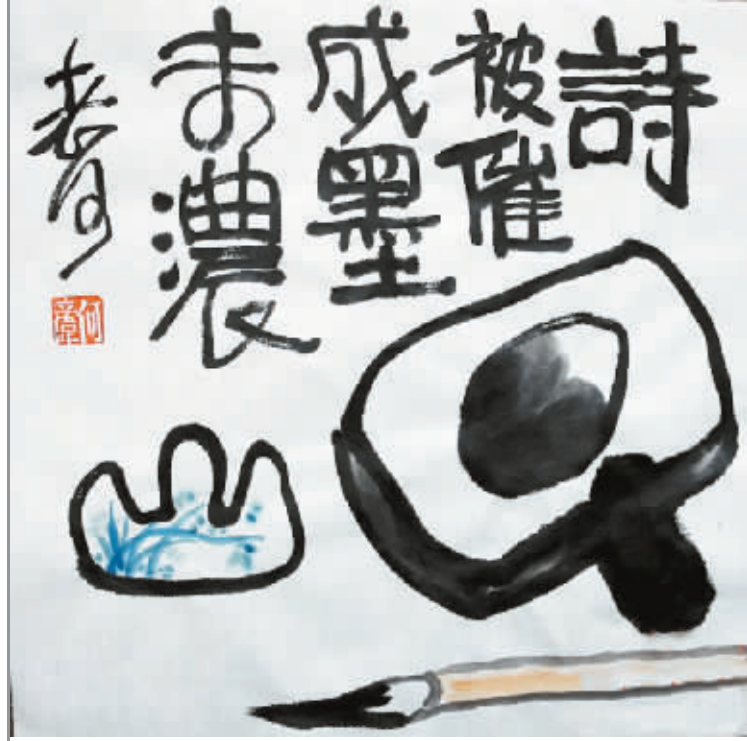 詩
被催
成墨
未濃
老何